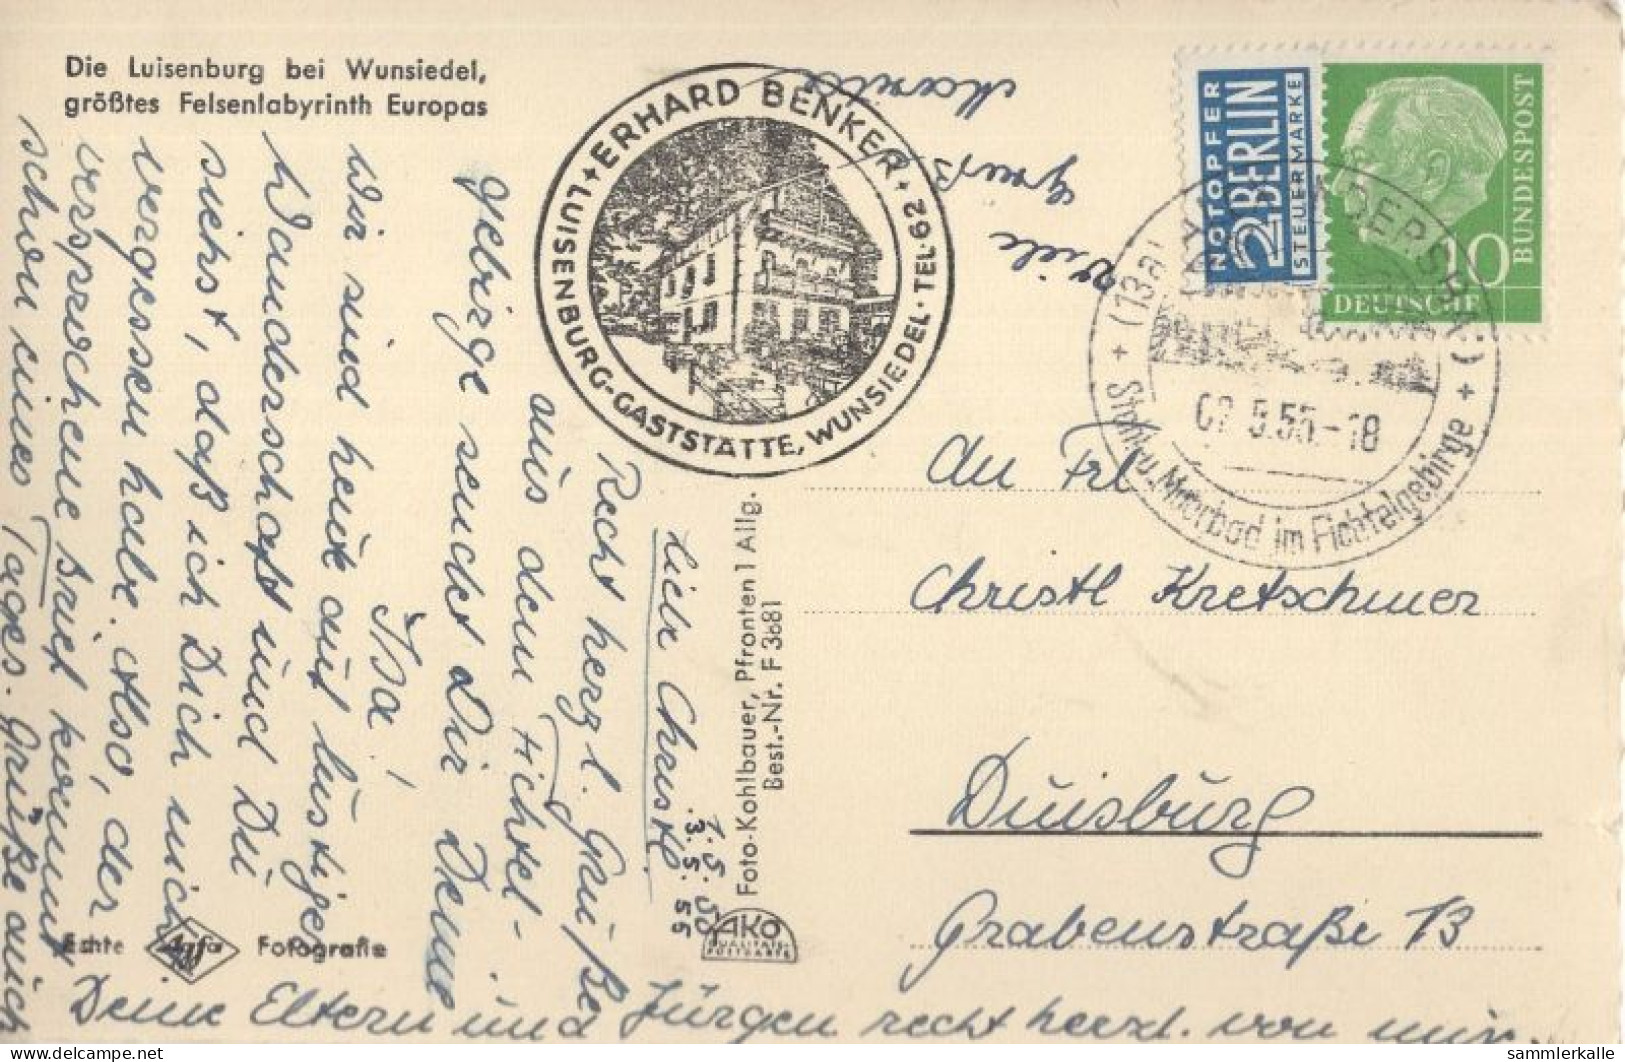 Die Luisenburg bei Wunsiedel,
größtes Felsenlabyrinth Europas
+ ERHARD BENKER + TEL. 62
LUISENBURG-GASTSTÄTTE, WUNSIEDEL
NOTOPFER
2 BERLIN
STEUERMARKE
10
DEUTSCHE
BUNDESPOST
+ (13a)
5.55.-18
Stahl- u. Moorbad im Fichtelgebirge +
An Frl
Christl Kretschmer
Duisburg
Grabenstraße 13
Foto-Kohlbauer, Pfronten 1 Allg.
Best.-Nr. F 3681
AKO
QUALITÄTS-
POSTKARTE
3. 5. 55
Liebe Christl.
Recht herzl. Grüße
aus dem Fichtel-
gebirge sendet Dir Deine
Isa!
Wir sind heute auf lustiger
Wanderschaft und Du
siehst, daß ich Dich nicht
vergessen habe. Also, der
versprochene Brief kommt
schon eines Tages. Grüße auch
Deine Eltern und Jürgen recht herzl. von mir.
Viele
Grüße
Echte Agfa Fotografie
sammlerkalle
www.delcampe.net